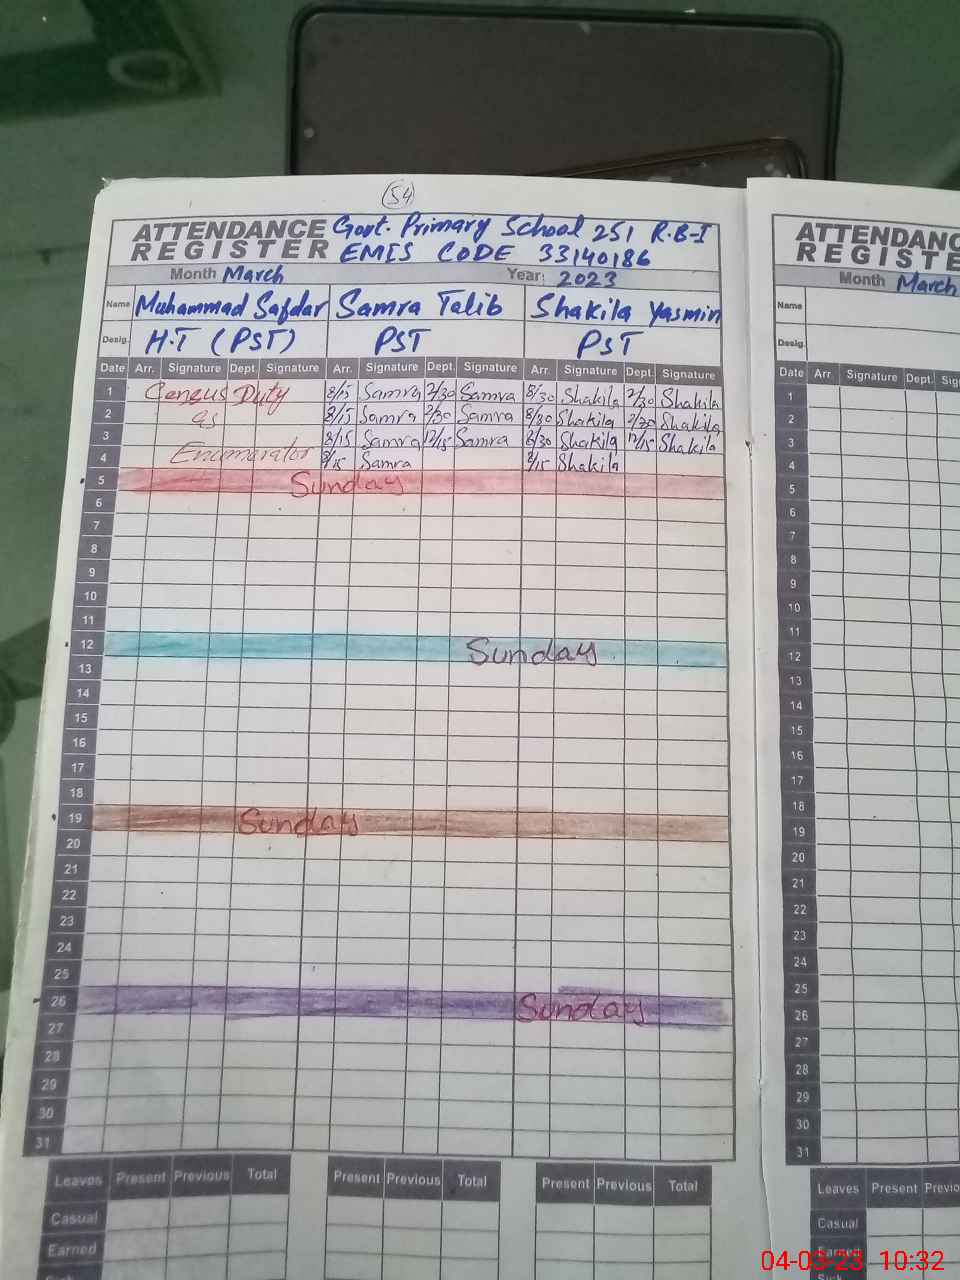 54
ATTENDANCE REGISTER Govt. Primary School 251 R.B-I
EMIS CODE 33140186
Month March Year: 2023
Name Muhammad Safdar Samra Talib Shakila Yasmin
Desig. H.T (PST) PST PST
Date Arr. Signature Dept. Signature Arr. Signature Dept. Signature Arr. Signature Dept. Signature
1 Census Duty 8/15 Samra 2/30 Samra 8/30 Shakila 2/30 Shakila
2 as 8/15 Samra 2/30 Samra 8/30 Shakila 2/30 Shakila
3 8/15 Samra 12/15 Samra 8/30 Shakila 12/15 Shakila
4 Enumerator 8/15 Samra 8/15 Shakila
5 Sunday
6
7
8
9
10
11
12 Sunday
13
14
15
16
17
18
19 Sunday
20
21
22
23
24
25
26 Sunday
27
28
29
30
31
Leaves Present Previous Total Present Previous Total Present Previous Total
Casual
Earned
REGISTE
Month March
Name
Desig.
Date Arr. Signature Dept.
1
2
3
4
5
6
7
8
9
10
11
12
13
14
15
16
17
18
19
20
21
22
23
24
25
26
27
28
29
30
31
Leaves Present
Casual
Earned
04-03-23 10:32